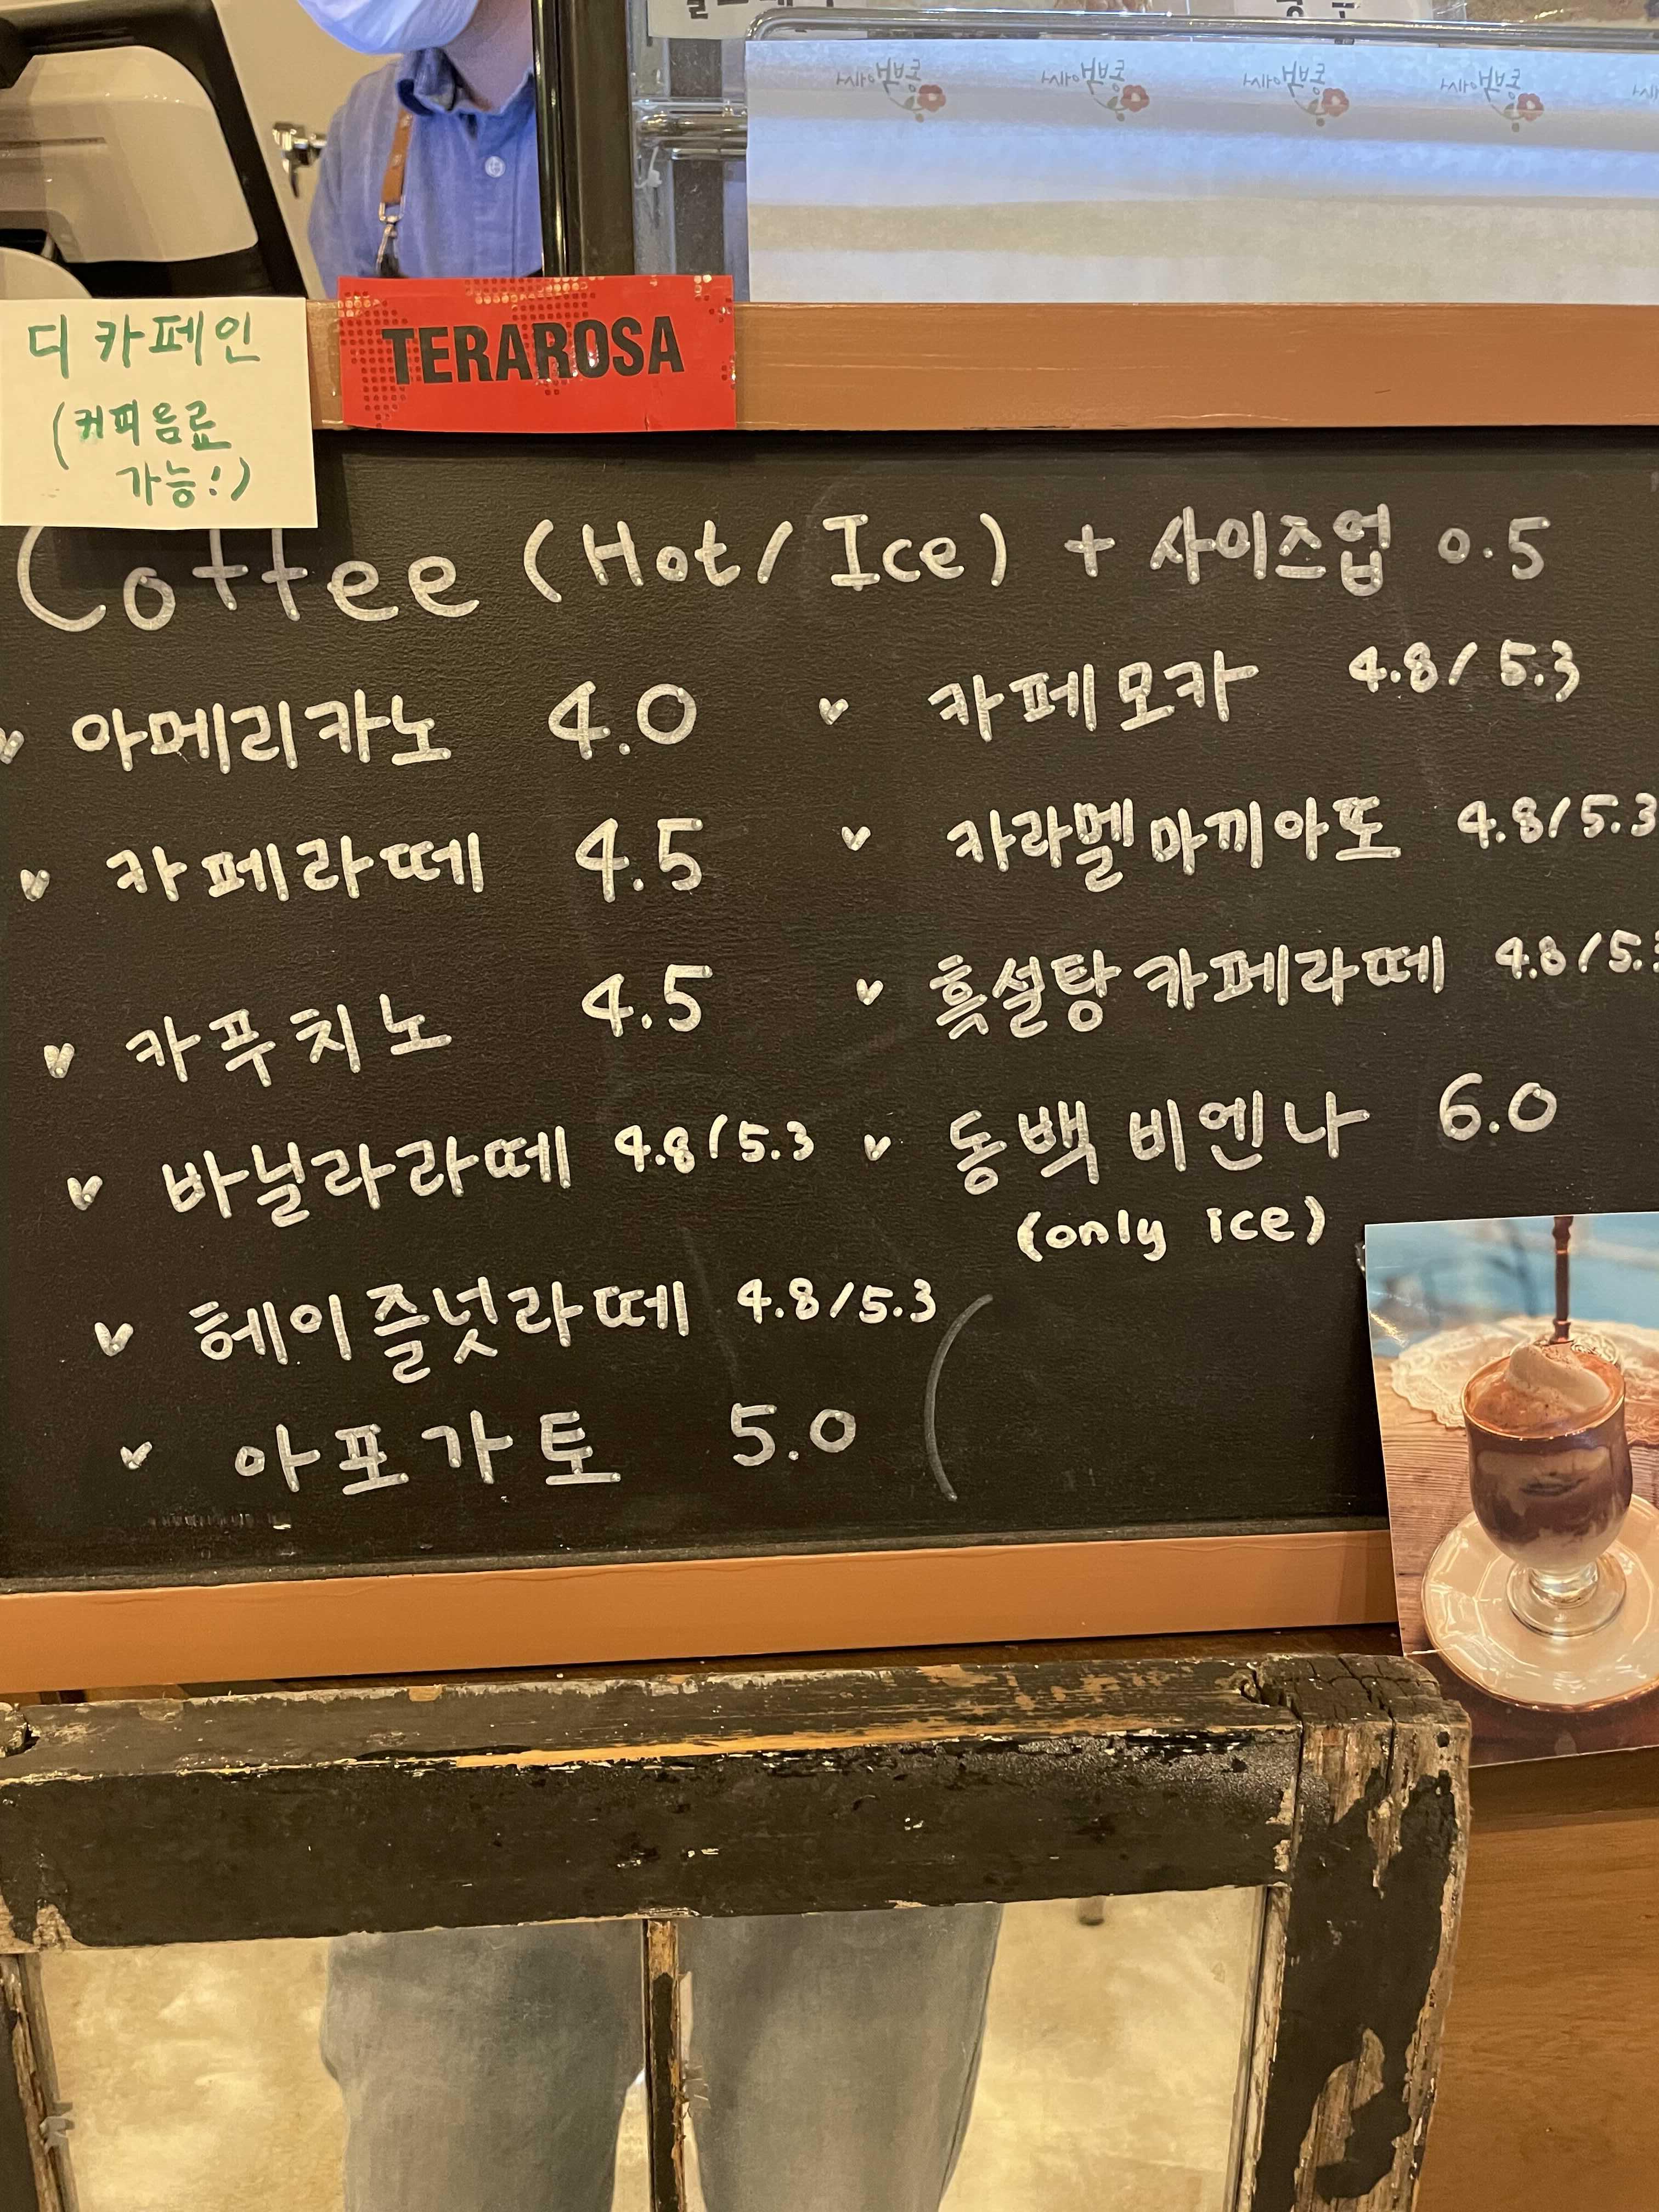 디카페인
(커피음료
가능!)
TERAROSA
Coffee (Hot/Ice) + 사이즈업 0.5
아메리카노 4.0
카페라떼 4.5
카푸치노 4.5
바닐라라떼 4.8/5.3
헤이즐넛라떼 4.8/5.3
아포가토 5.0
카페모카 4.8/5.3
카라멜마끼아또 4.8/5.3
흑설탕카페라떼 4.8/5.3
동백비엔나 6.0
(only ice)